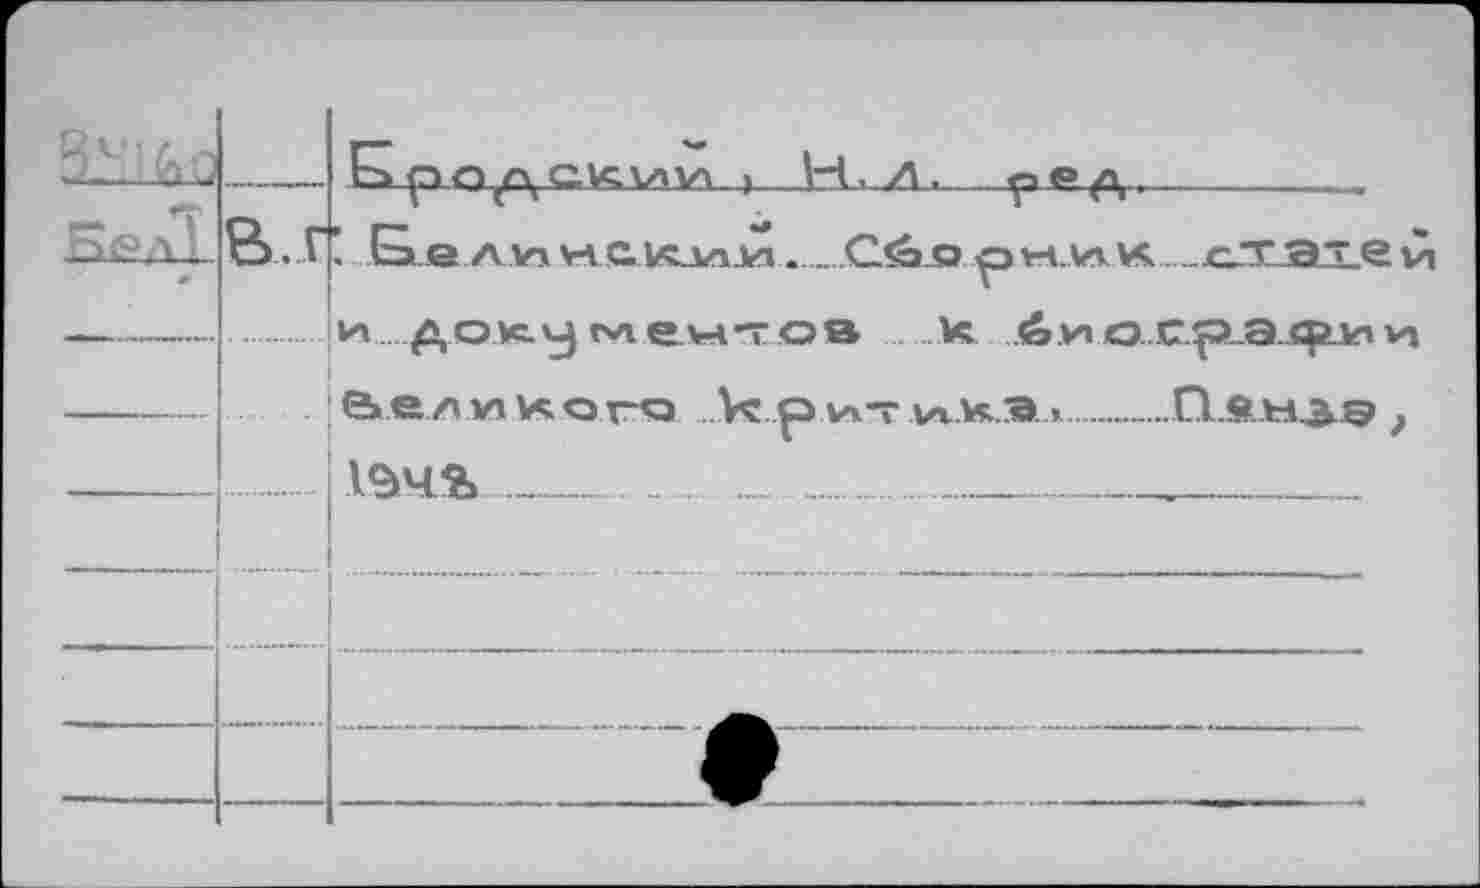 Бродский, Н. Л. ред.
Бел1 В. Г. Белинский. Сборник статей
и документов к биографии
великого критика. Пенза,
1948